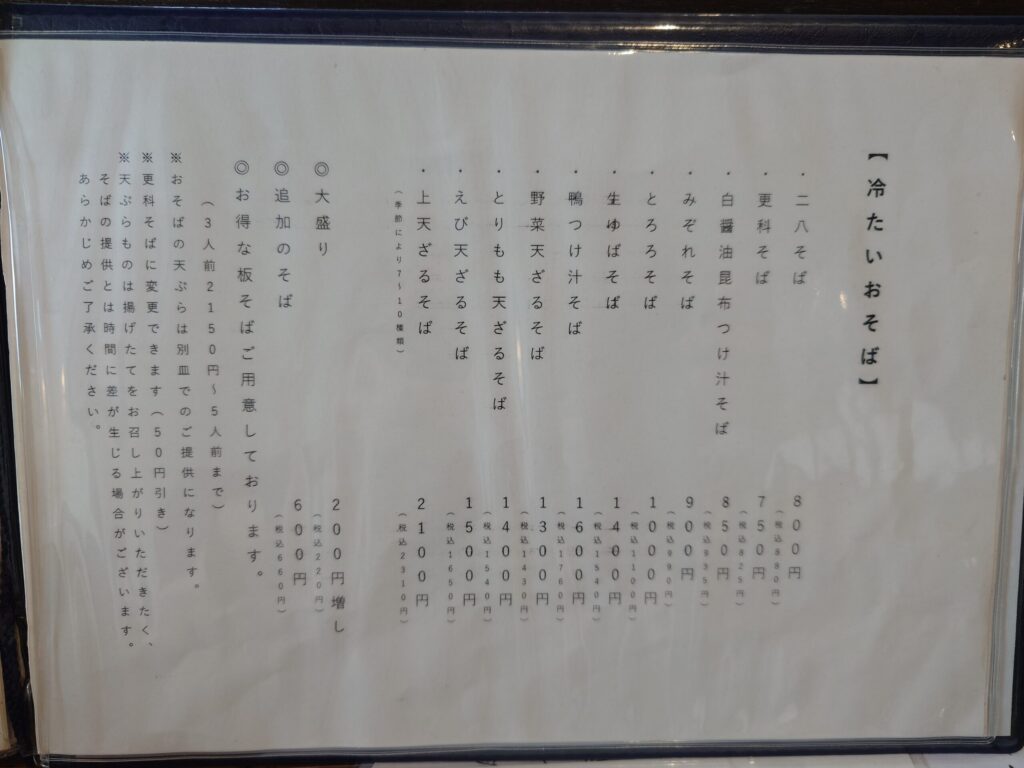 【冷たいおそば】
・二八そば 800円
(税込880円)
・更科そば 750円
(税込825円)
・白醤油昆布つけ汁そば 850円
(税込935円)
・みぞれそば 900円
(税込990円)
・とろろそば 1000円
(税込1100円)
・生ゆばそば 1400円
(税込1540円)
・鴨つけ汁そば 1600円
(税込1760円)
・野菜天ざるそば 1300円
(税込1430円)
・とりもも天ざるそば 1400円
(税込1540円)
・えび天ざるそば 1500円
(税込1650円)
・上天ざるそば 2100円
(季節により7~10種類) (税込2310円)
◎大盛り 200円増し
(税込220円)
◎追加のそば 600円
(税込660円)
◎お得な板そばご用意しております。
(3人前2150円~5人前まで)
※おそばの天ぷらは別皿でのご提供になります。
※更科そばに変更できます(50円引き)
※天ぷらものは揚げたてをお召し上がりいただきたく、
そばの提供とは時間に差が生じる場合がございます。
あらかじめご了承ください。